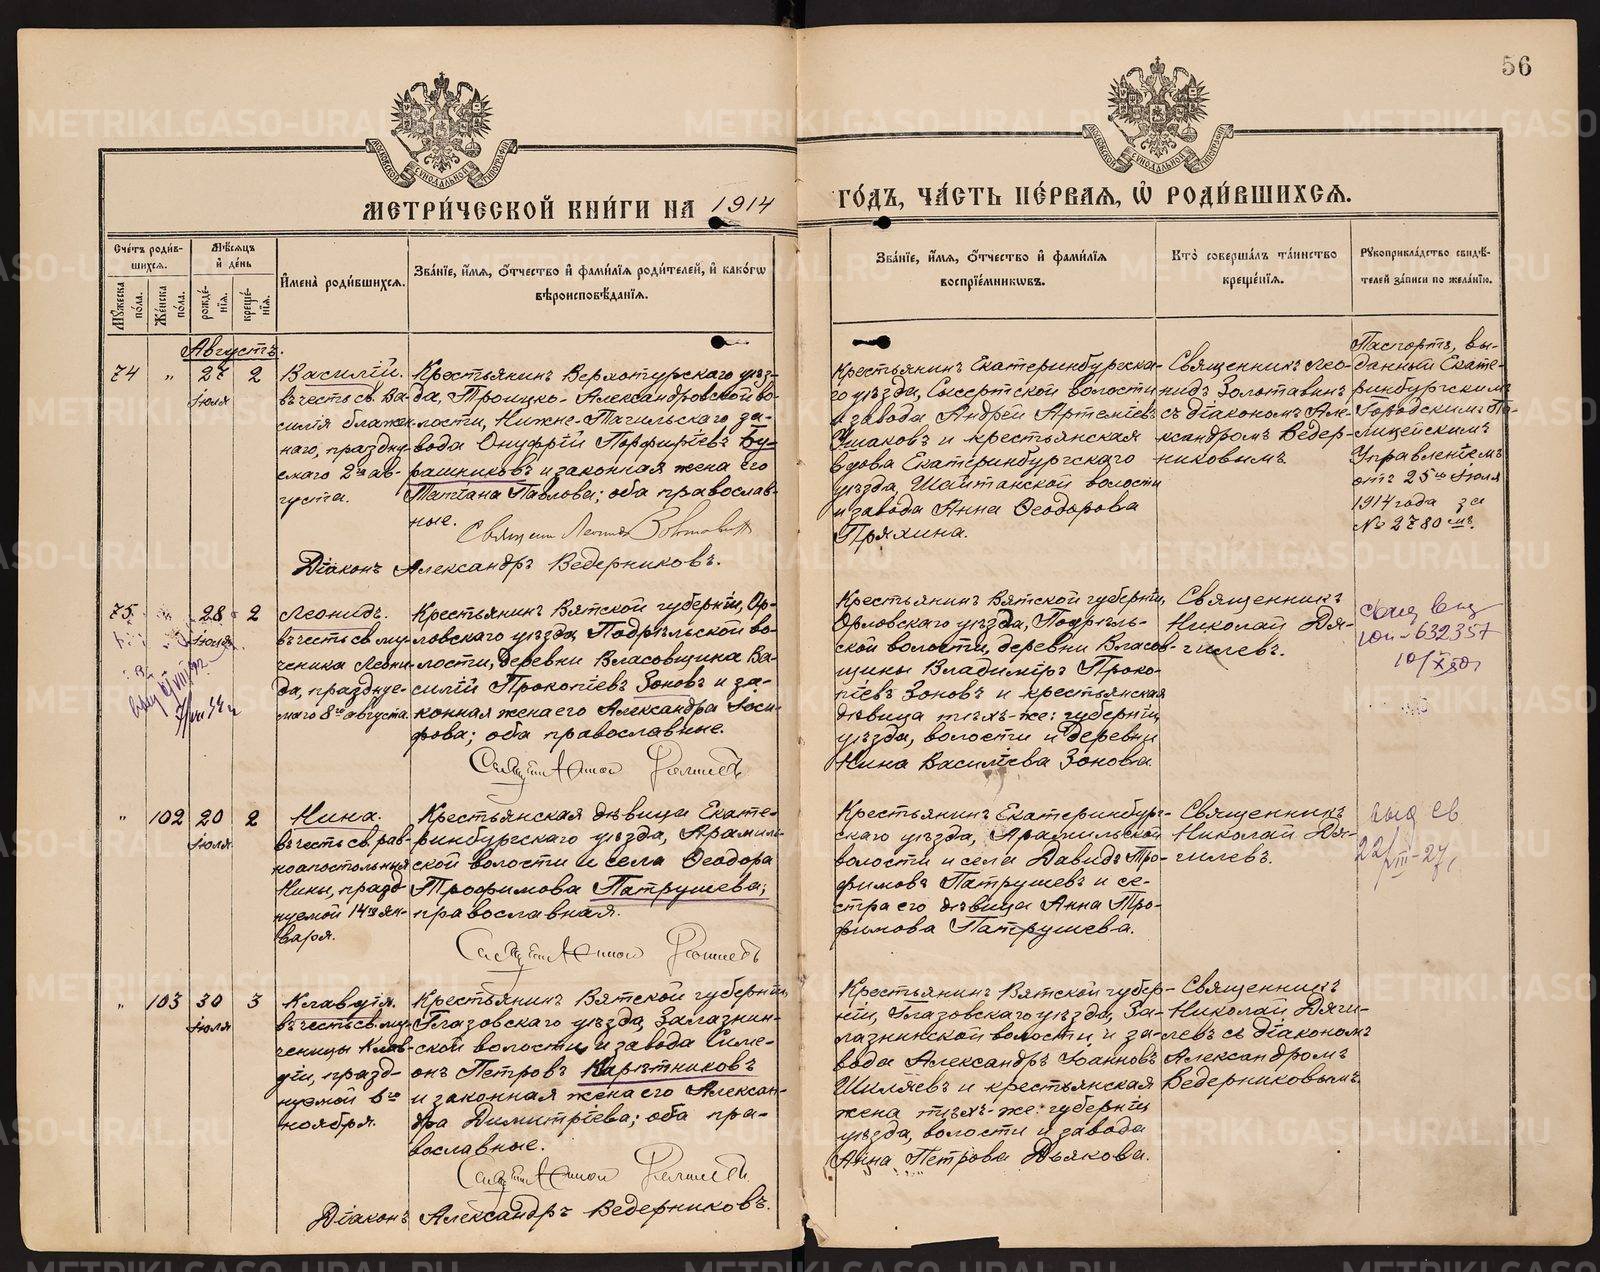 56
МЕТРИ́ЧЕСКОЙ КНИ́ГИ НА 1914 ГО́ДЪ, ЧА́СТЬ ПЕ́РВАЯ, Ѡ҆ РОДИ́ВШИХСЯ.
Сче́тъ роди́в-
шихся.
Мѣ́сяцъ
и҆ де́нь
Мꙋ́жеска по́ла.
Же́нска по́ла.
рожде́-
нїя.
креще́-
нїя.
И҆мена̀ роди́вшихся.
Зва́нїе, и҆́мя, ѻ҆́тчество и҆ фами́лїя роди́телей, и҆ како́гѡ
вѣроисповѣ́данїя.
Зва́нїе, и҆́мя, ѻ҆́тчество и҆ фами́лїя
воспрїе́мникѡвъ.
Кто̀ соверша́лъ та́инство
креще́нїя.
Рꙋкоприкла́дство свидѣ́-
телей за́писи по жела́нїю.
Августъ.
74 „ 27 2
Іюля
Василій.
въ честь св. Ва-
силія блажен-
наго, праздну-
емаго 2го ав-
густа.
Крестьянинъ Верхотурскаго уѣз-
да, Троицко-Александровской во-
лости, Нижне-Тагильскаго за-
вода Онуфрій Порфиріевъ Бу-
рашниковъ и законная жена его
Татіана Павлова; оба православ-
ные.
Діаконъ Александръ Ведерниковъ.
Крестьянинъ Екатеринбургска-
го уѣзда, Сысертской волости
и завода Андрей Артеміевъ
Ушаковъ и крестьянская
вдова Екатеринбургскаго
уѣзда, Шайтанской волости
и завода Анна Ѳеодорова
Пряхина.
Священникъ Лео-
нидъ Золотавинъ
съ діакономъ Але-
ксандромъ Ведер-
никовымъ.
Паспортъ, вы-
данный Екате-
ринбургскимъ
Городскимъ По-
лицейскимъ
Управленіемъ
отъ 25го Іюля
1914 года за
№ 2780мъ.
75. „ 28 2
Іюля
Леонидъ.
въ честь св. му-
ченика Леони-
да, празднуе-
маго 8го августа.
Крестьянинъ Вятской губерніи, Ор-
ловскаго уѣзда, Подрѣльской во-
лости, деревни Власовщина Ва-
силій Прокопіевъ Зоновъ и за-
конная жена его Александра Іоси-
фова; оба православные.
Крестьянинъ Вятской губерніи,
Орловскаго уѣзда, Подрѣль-
ской волости, деревни Власов-
щины Владиміръ Проко-
піевъ Зоновъ и крестьянская
дѣвица тѣхъ-же: губерніи,
уѣзда, волости и деревни
Нина Василіева Зонова.
Священникъ
Николай Дя-
гилевъ.
632357
„ 102 20 2
Іюля
Нина.
въ честь св. рав-
ноапостольныя
Нины, празд-
нуемой 14го ян-
варя.
Крестьянская дѣвица Екате-
ринбургскаго уѣзда, Арамиль-
ской волости и села Ѳеодора
Трофимова Патрушева;
православная.
Крестьянинъ Екатеринбург-
скаго уѣзда, Арамильской
волости и села Давидъ Тро-
фимовъ Патрушевъ и се-
стра его дѣвица Анна Тро-
фимова Патрушева.
Священникъ
Николай Дя-
гилевъ.
22/VIII-27
„ 103 30 3
Іюля
Клавдія.
въ честь св. му-
ченицы Клав-
діи, празд-
нуемой 6го
ноября.
Крестьянинъ Вятской губерніи,
Глазовскаго уѣзда, Залазнин-
ской волости и завода Симе-
онъ Петровъ Каратниковъ
и законная жена его Алексан-
дра Димитріева; оба пра-
вославные.
Діаконъ Александръ Ведерниковъ.
Крестьянинъ Вятской губер-
ніи, Глазовскаго уѣзда, За-
лазнинской волости и за-
вода Александръ Іоанновъ
Шиляевъ и крестьянская
жена тѣхъ-же: губерніи,
уѣзда, волости и завода
Анна Петрова Дьякова.
Священникъ
Николай Дяги-
левъ съ діакономъ
Александромъ
Ведерниковымъ.
METRIKI.GASO-URAL.RU